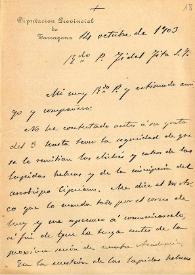 Diputación Provincial
de
Tarragona
14 octubre de 1903
Rdo P. Fidel Fita S.J.
Mi muy Rdo P. y estimado ami
go y compañero:
No he contestado antes á su grata
del 3 hasta tener la seguridad de que
se le remitían los clichés y calcos de las
lápidas hebreas y de la inscripción del
arzobispo Cipriano. Me dice el
co que lo manda hoy por el correo de
hoy y me apresuro á comunicárselo,
á fin de que lo tenga antes de la
próxima sesión de nuestra Academia.
En la cuestión de las lápidas hebreas